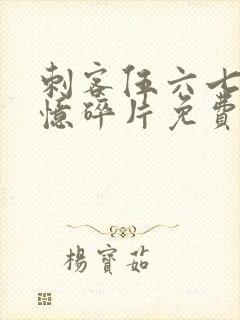 刺客伍六七
憶碎片免費
楊寶茹